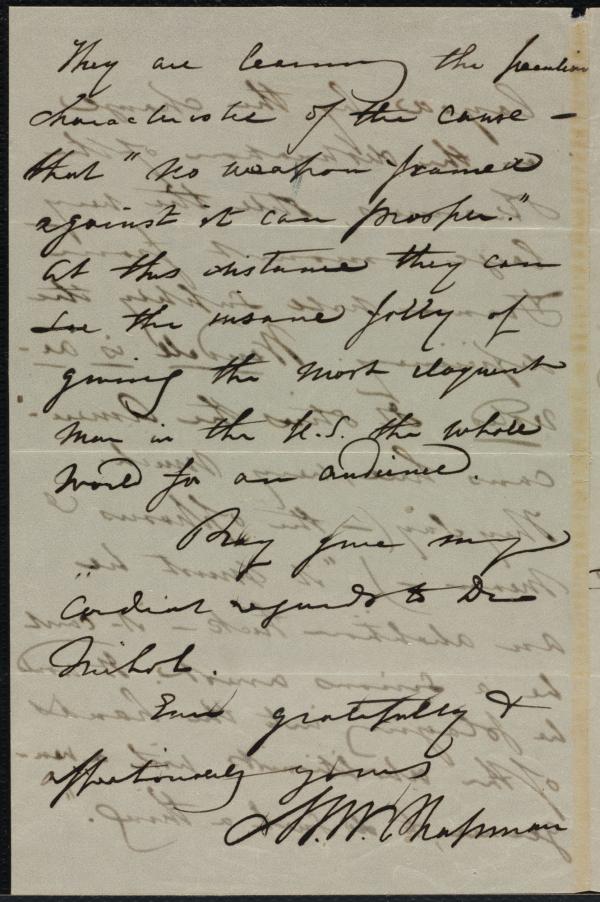 They are learning the peculiar
characteristic of the cause –
that "no weapon framed
against it can prosper."
At this distance they can
see the insane folly of
giving the most eloquent
man in the U.S. the whole
world for an audience.
Pray give my
cordial regards to Dr
Nichol.
Ever gratefully &
affectionately yours
M.W. Chapman